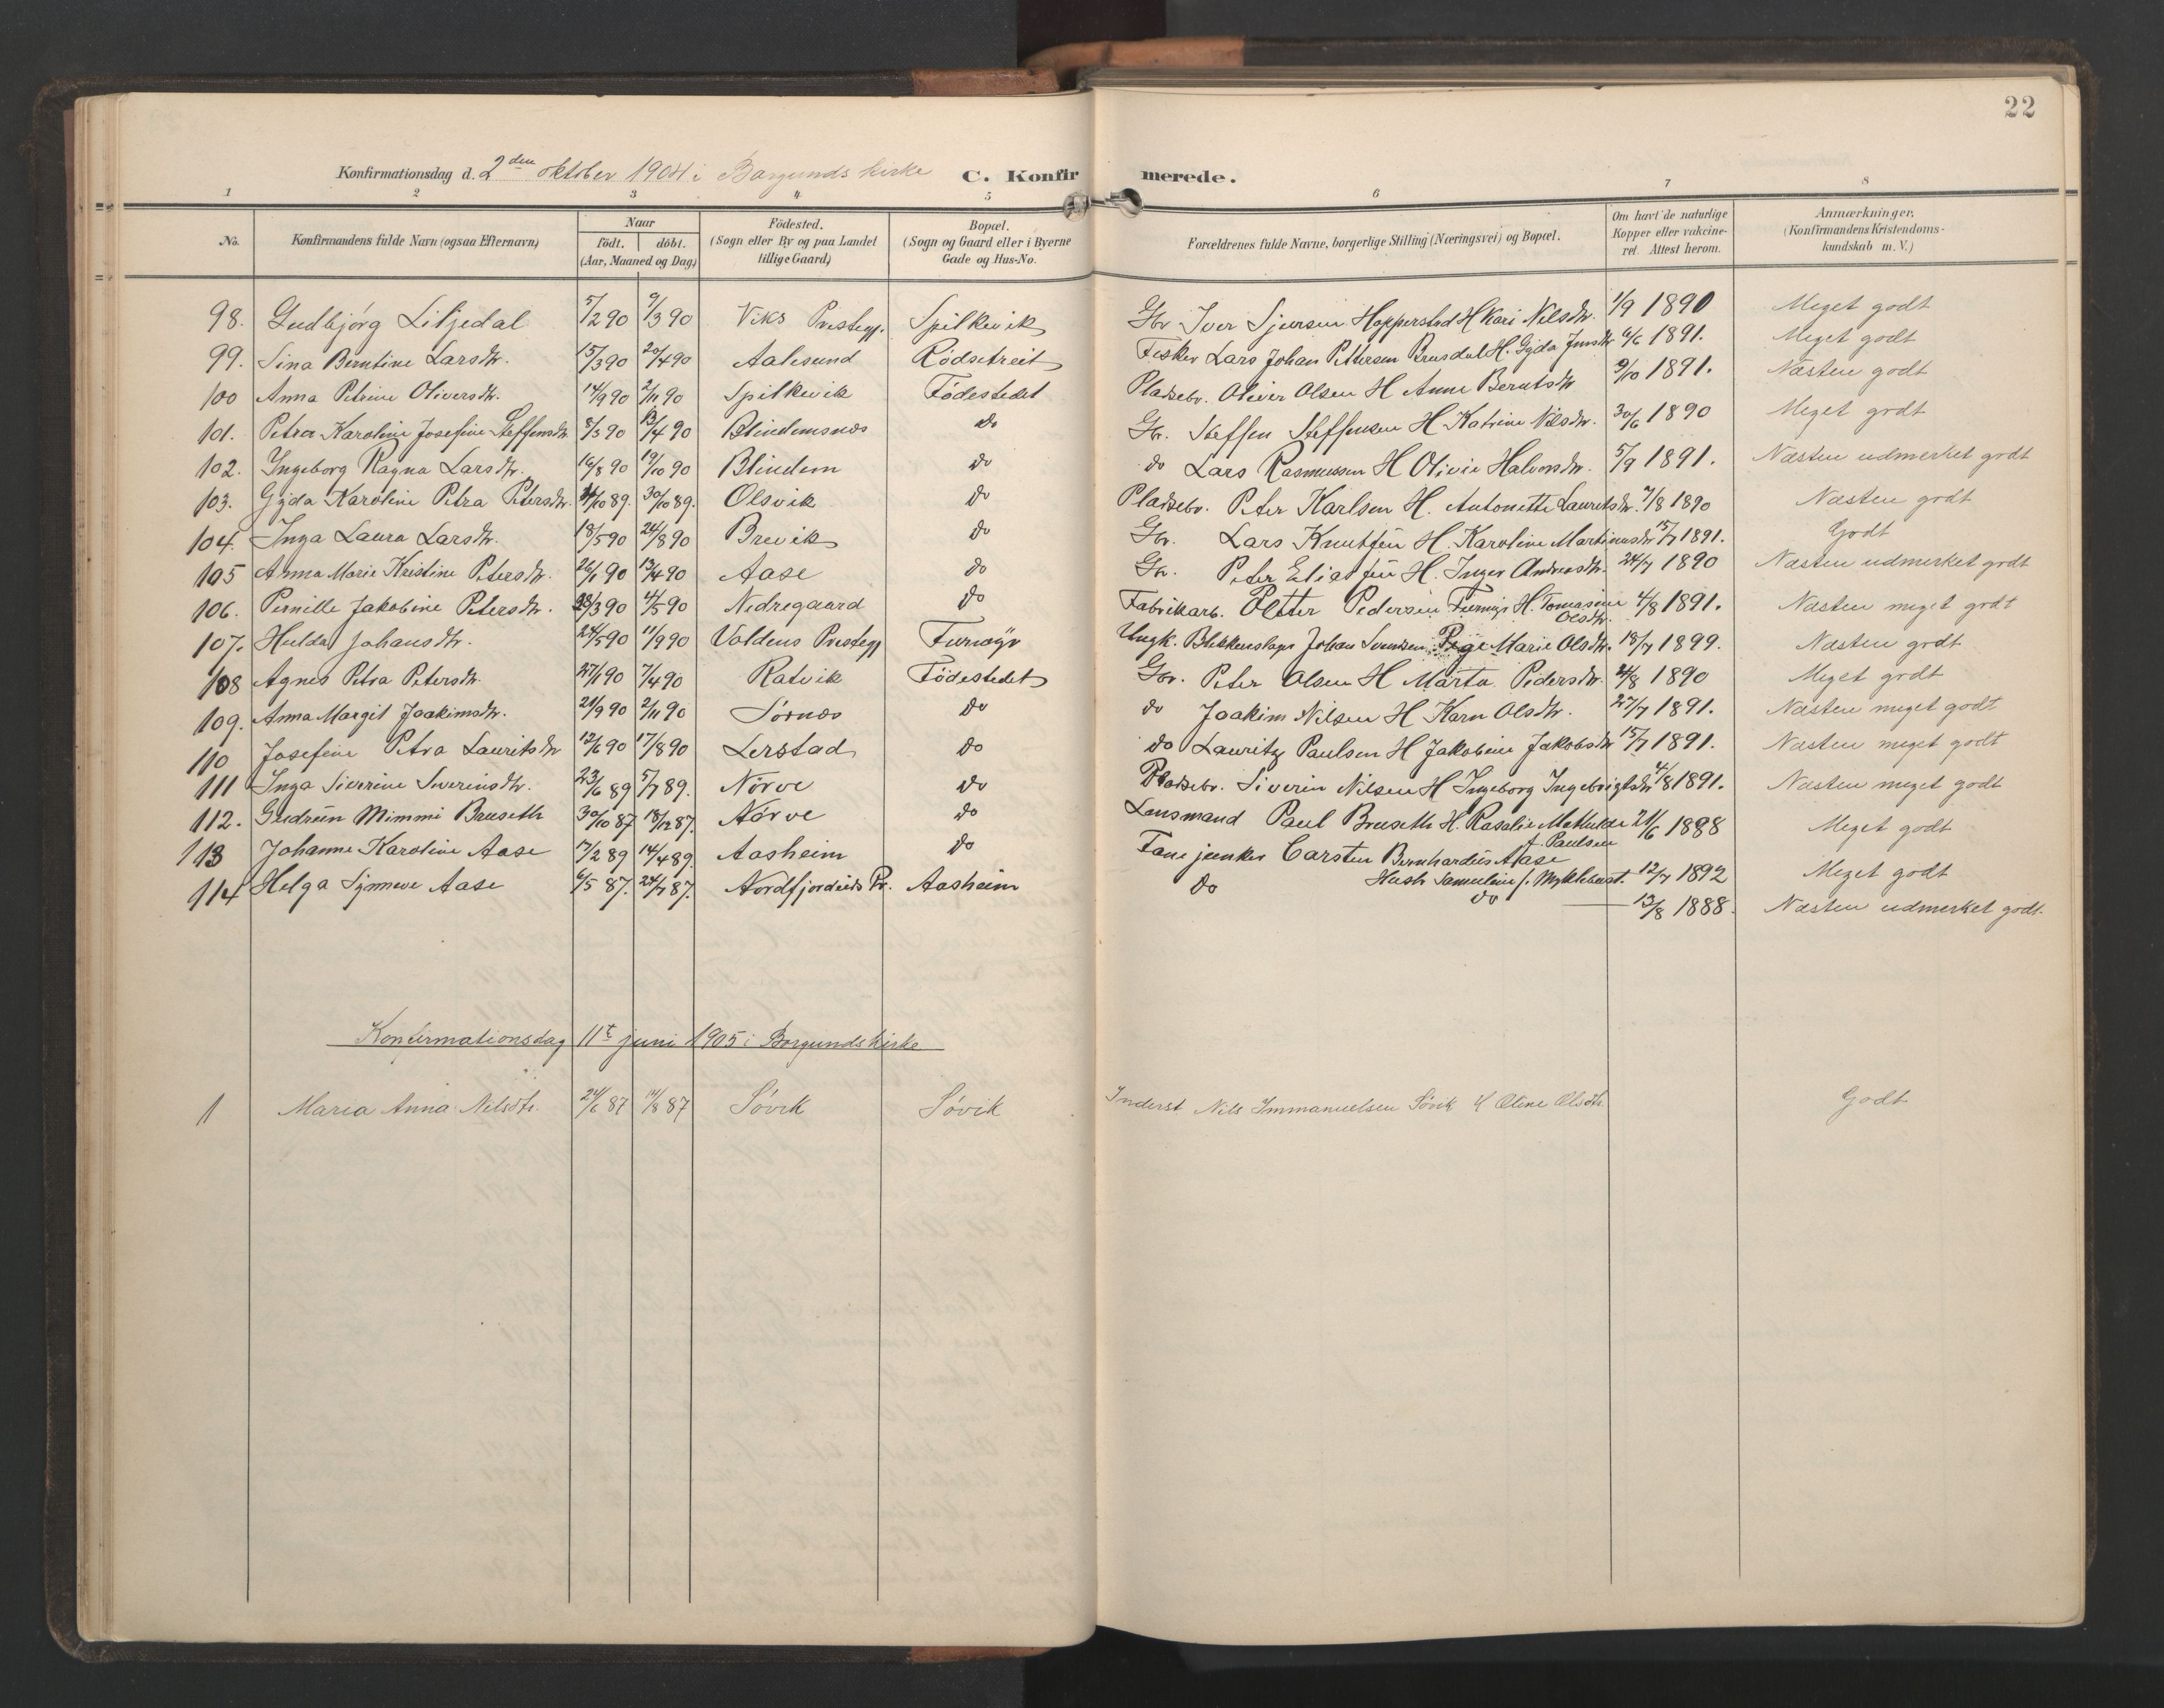 22
Konfirmationsdag d. 2den oktober 1904 i Borgunds kirke C. Konfirmerede.
1 2 3 4 5 6 7 8
No. Konfirmandens fulde Navn (ogsaa Efternavn) Naar født. døbt. (Aar, Maaned og Dag) Fødested. (Sogn eller By og paa Landet tillige Gaard) Bopæl. (Sogn og Gaard eller i Byerne Gade og Hus-No. Forældrenes fulde Navne, borgerlige Stilling (Næringsvei) og Bopæl. Om havt de naturlige Kopper eller vakcineret. Attest herom. Anmærkninger. (Konfirmandens Kristendomskundskab m. V.)
98. Gudbjørg Liljedal 5/2 90 9/3 90 Viks Prestegj. Spilkevik Gbr Iver Sjursen Hopperstad H Kari Nilsdtr. 1/9 1890 Meget godt
99. Sina Berntine Larsdtr. 15/3 90 20/4 90 Aalesund Rødsetreit Fisker Lars Johan Pettersen Brusdal H. Gyda Jensdtr 6/6 1891. Meget godt
100 Anna Petrine Oliversdtr. 14/9 90 2/11 90 Spilkevik Fødestedet Pladsebr. Oliver Olsen H Anne Berntsdtr 9/10 1891. Næsten godt
101. Petra Karoline Josefine Steffensdtr. 8/3 90 13/4 90 Blindemsnes do Gbr. Steffen Steffensen H Katrine Nilsdtr. 30/6 1890 Meget godt
102. Ingeborg Ragna Larsdtr. 16/8 90 19/10 90 Blindem do do Lars Rasmussen H Olivie Halvorsdtr. 5/9 1891. Næsten udmerket godt
103. Gyda Karoline Petra Petersdtr. /10 89. 30/10 89. Olsvik do Pladsebr. Peter Karlsen H. Antonette Lauritsdtr. 7/8 1890 Næsten godt
104. Inga Laura Larsdtr. 18/5 90 24/8 90 Brevik do Gbr. Lars Knutsen H. Karoline Martinusdtr 15/7 1891. Godt
105 Anna Marie Kristine Petersdtr. 26/1 90 13/4 90 Aase do Gbr. Peter Eliassen H. Inger Andreasdtr. 24/7 1890 Næsten udmerket godt
106. Pernille Jakobine Petersdtr. 28/3 90 4/5 90 Nedregaard do Fabrikarb. Petter Pedersen H. Tomasine Olsdtr. 4/8 1891. Næsten meget godt
107. Hulda Johansdtr. 24/5 90 11/9 90 Voldens Prestegj Furnøyr Ungk. Blikkenslager Johan Svendsen Pige Marie Olsdtr. 18/7 1899. Næsten godt
108 Agnes Petra Petersdtr. 27/1 90 7/4 90 Ratvik Fødestedet Gbr. Peter Olsen H Marta Pedersdtr. 24/8 1890 Meget godt
109. Anna Margit Joakimsdtr. 21/9 90 2/11 90 Sørnes do do Joakim Nilsen H Karn Olsdtr. 27/7 1891. Næsten meget godt
110 Josefine Petra Lauritsdtr 12/6 90 17/8 90 Lerstad do do Lauritz Paulsen H Jakobine Jakobsdtr 15/7 1891. Næsten meget godt
111 Inga Siverine Siverinsdtr. 23/6 89 5/7 89. Nørve do Pladsebr. Siverin Nilsen H Ingeborg Ingebrigtsdtr 4/8 1891. Næsten meget godt
112. Gudrun Mimmi Bruseth 30/10 87 18/12 87. Nørve do Lensmand Paul Bruseth H. Rasalie Mathilde f. Paulsen 21/6 1888 Meget godt
113 Johanne Karoline Aase 17/2 89 14/4 89. Aasheim do Fanejunker Carsten Bernhardus Aase Hustr Samueline f. Myklebust. 12/7 1892 Meget godt
114 Helga Synneve Aase 6/5 87. 24/7 87. Nordfjordeids Pr. Aasheim do do 13/8 1888. Næsten udmerket godt.
Konfirmationsdag 11t juni 1905 i Borgunds kirke
1 Maria Anna Nilsdtr. 24/6 87 14/8 87 Søvik Søvik Inderst Nils Immanuelsen Søvik H Oline Olsdtr. Godt